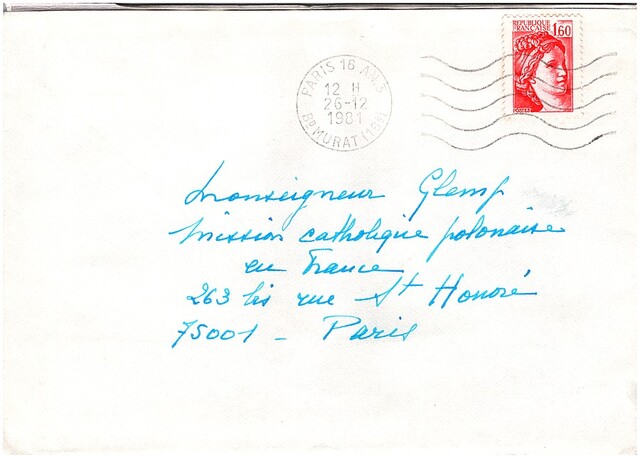 REPUBLIQUE
FRANÇAISE 1,60
PARIS 16 AN.3
12 H
26-12
1981
Bd MURAT (16e)
Monseigneur Glemp
Mission catholique polonaise
en France
263 bis rue St Honoré
75001 - Paris